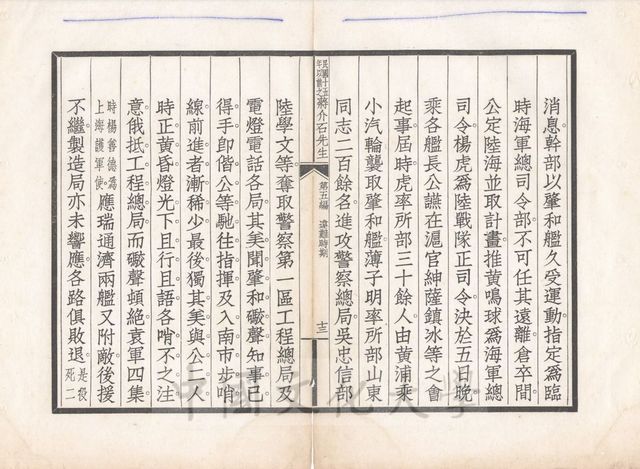 消息幹部以肇和艦久受運動指定為臨
時海軍總司令部不可任其遠離倉卒間
公定陸海並取計畫推黃鳴球為海軍總
司令楊虎為陸戰隊正司令決於五日晚
乘各艦長公讌在滬官紳薩鎮冰等之會
起事屆時虎率所部三十餘人由黃浦乘
小汽輪襲取肇和艦薄子明率所部山東
同志二百餘名進攻警察總局吳忠信部
民國十五年以前之蔣介石先生
第五編 遠難時期
十三
陸學文等奪取警察第一區工程總局及
電燈電話各局其美聞肇和礮聲知事已
得手卽偕公等馳往指揮及入南市步哨
線前進者漸稀少最後獨其美與公二人
時正黃昏燈光下且行且語各哨不之注
意俄抵工程總局而礮聲頓絶袁軍四集
時楊善德為上海護軍使應瑞通濟兩艦又附敵後援
不繼製造局亦未響應各路俱敗退是役死二
中國文化大學